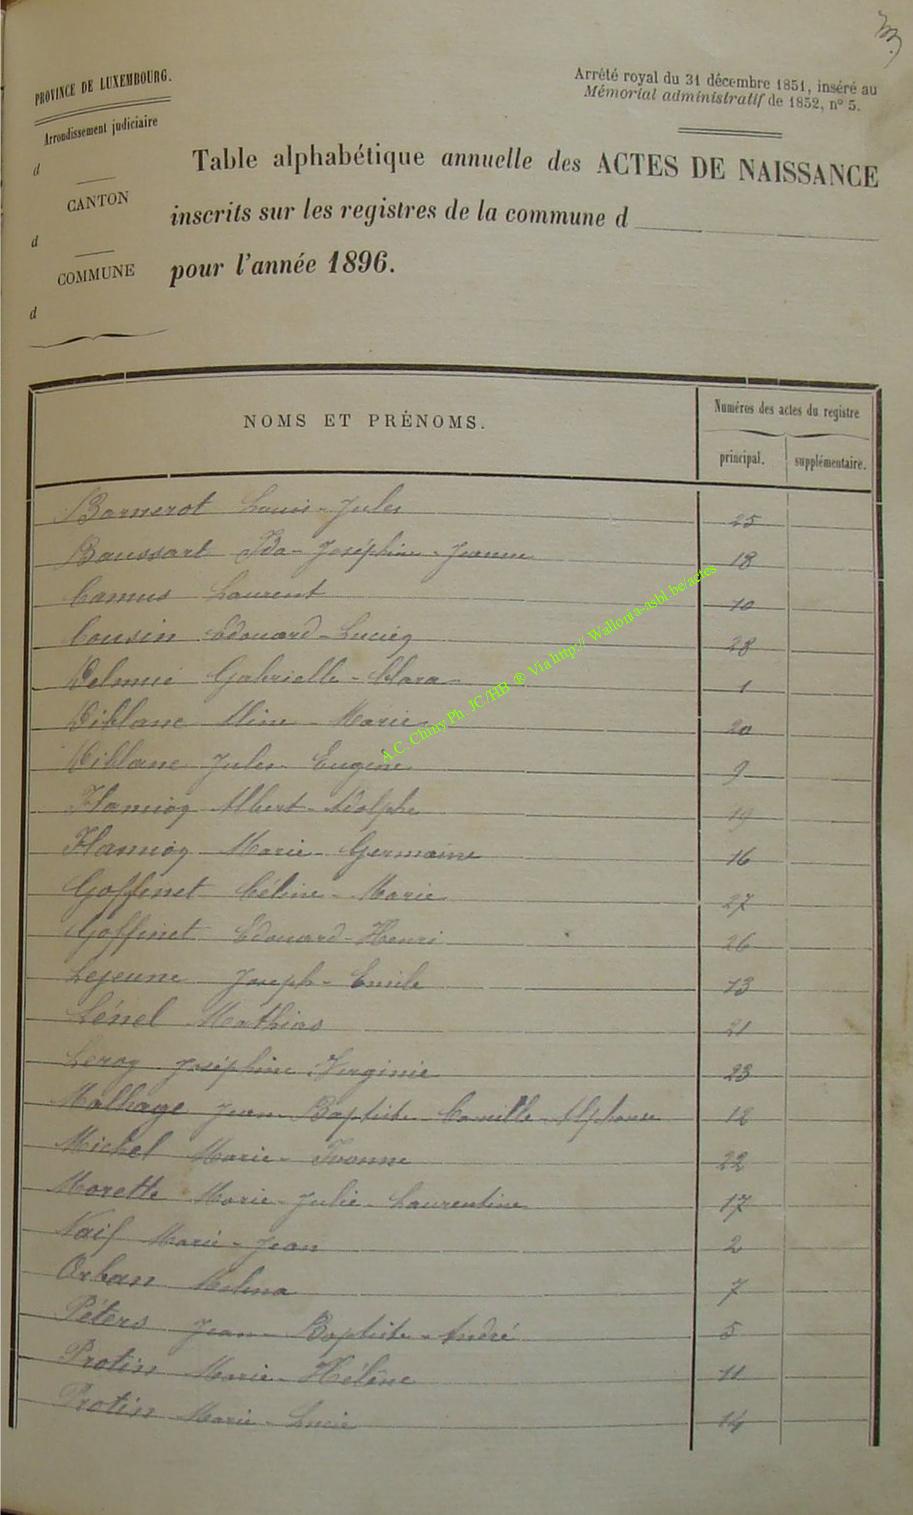 PROVINCE DE LUXEMBOURG.
Arrondissement judiciaire
d
CANTON
d
COMMUNE
d
Arrêté royal du 31 décembre 1851, inséré au
Mémorial administratif de 1852, n° 5.
Table alphabétique annuelle des ACTES DE NAISSANCE
inscrits sur les registres de la commune d
pour l'année 1896.
NOMS ET PRÉNOMS.
Numéros des actes du registre
principal. supplémentaire.
Barnerot Louis-Jules 25
Baussart Ida-Joséphine-Jeanne 18
Camus Laurent 10
Cousin Edouard-Lucien 28
Gabrielle-Clara 1
Diblanc Aline-Marie 20
Diblanc Jules-Eugène 9
Flamion Albert-Adolphe 19
Flamion Marie-Germaine 16
Goffinet Céline-Marie 27
Goffinet Edouard-Henri 26
Lejeune Joseph-Emile 13
Lénel Mathias 21
Leroy Joséphine Virginie 23
Malhage Jean-Baptiste-Camille-Alphonse 12
Michel Marie-Ivonne 22
Morette Marie-Julie-Laurentine 17
Naif Marie-Jean 2
Orban Melina 7
Péters Jean-Baptiste-André 5
Protin Marie-Hélène 11
Protin Marie-Lucie 14
A.C. Chiny Ph. JC/HB ® Via http://Wallonia-asbl.be/actes